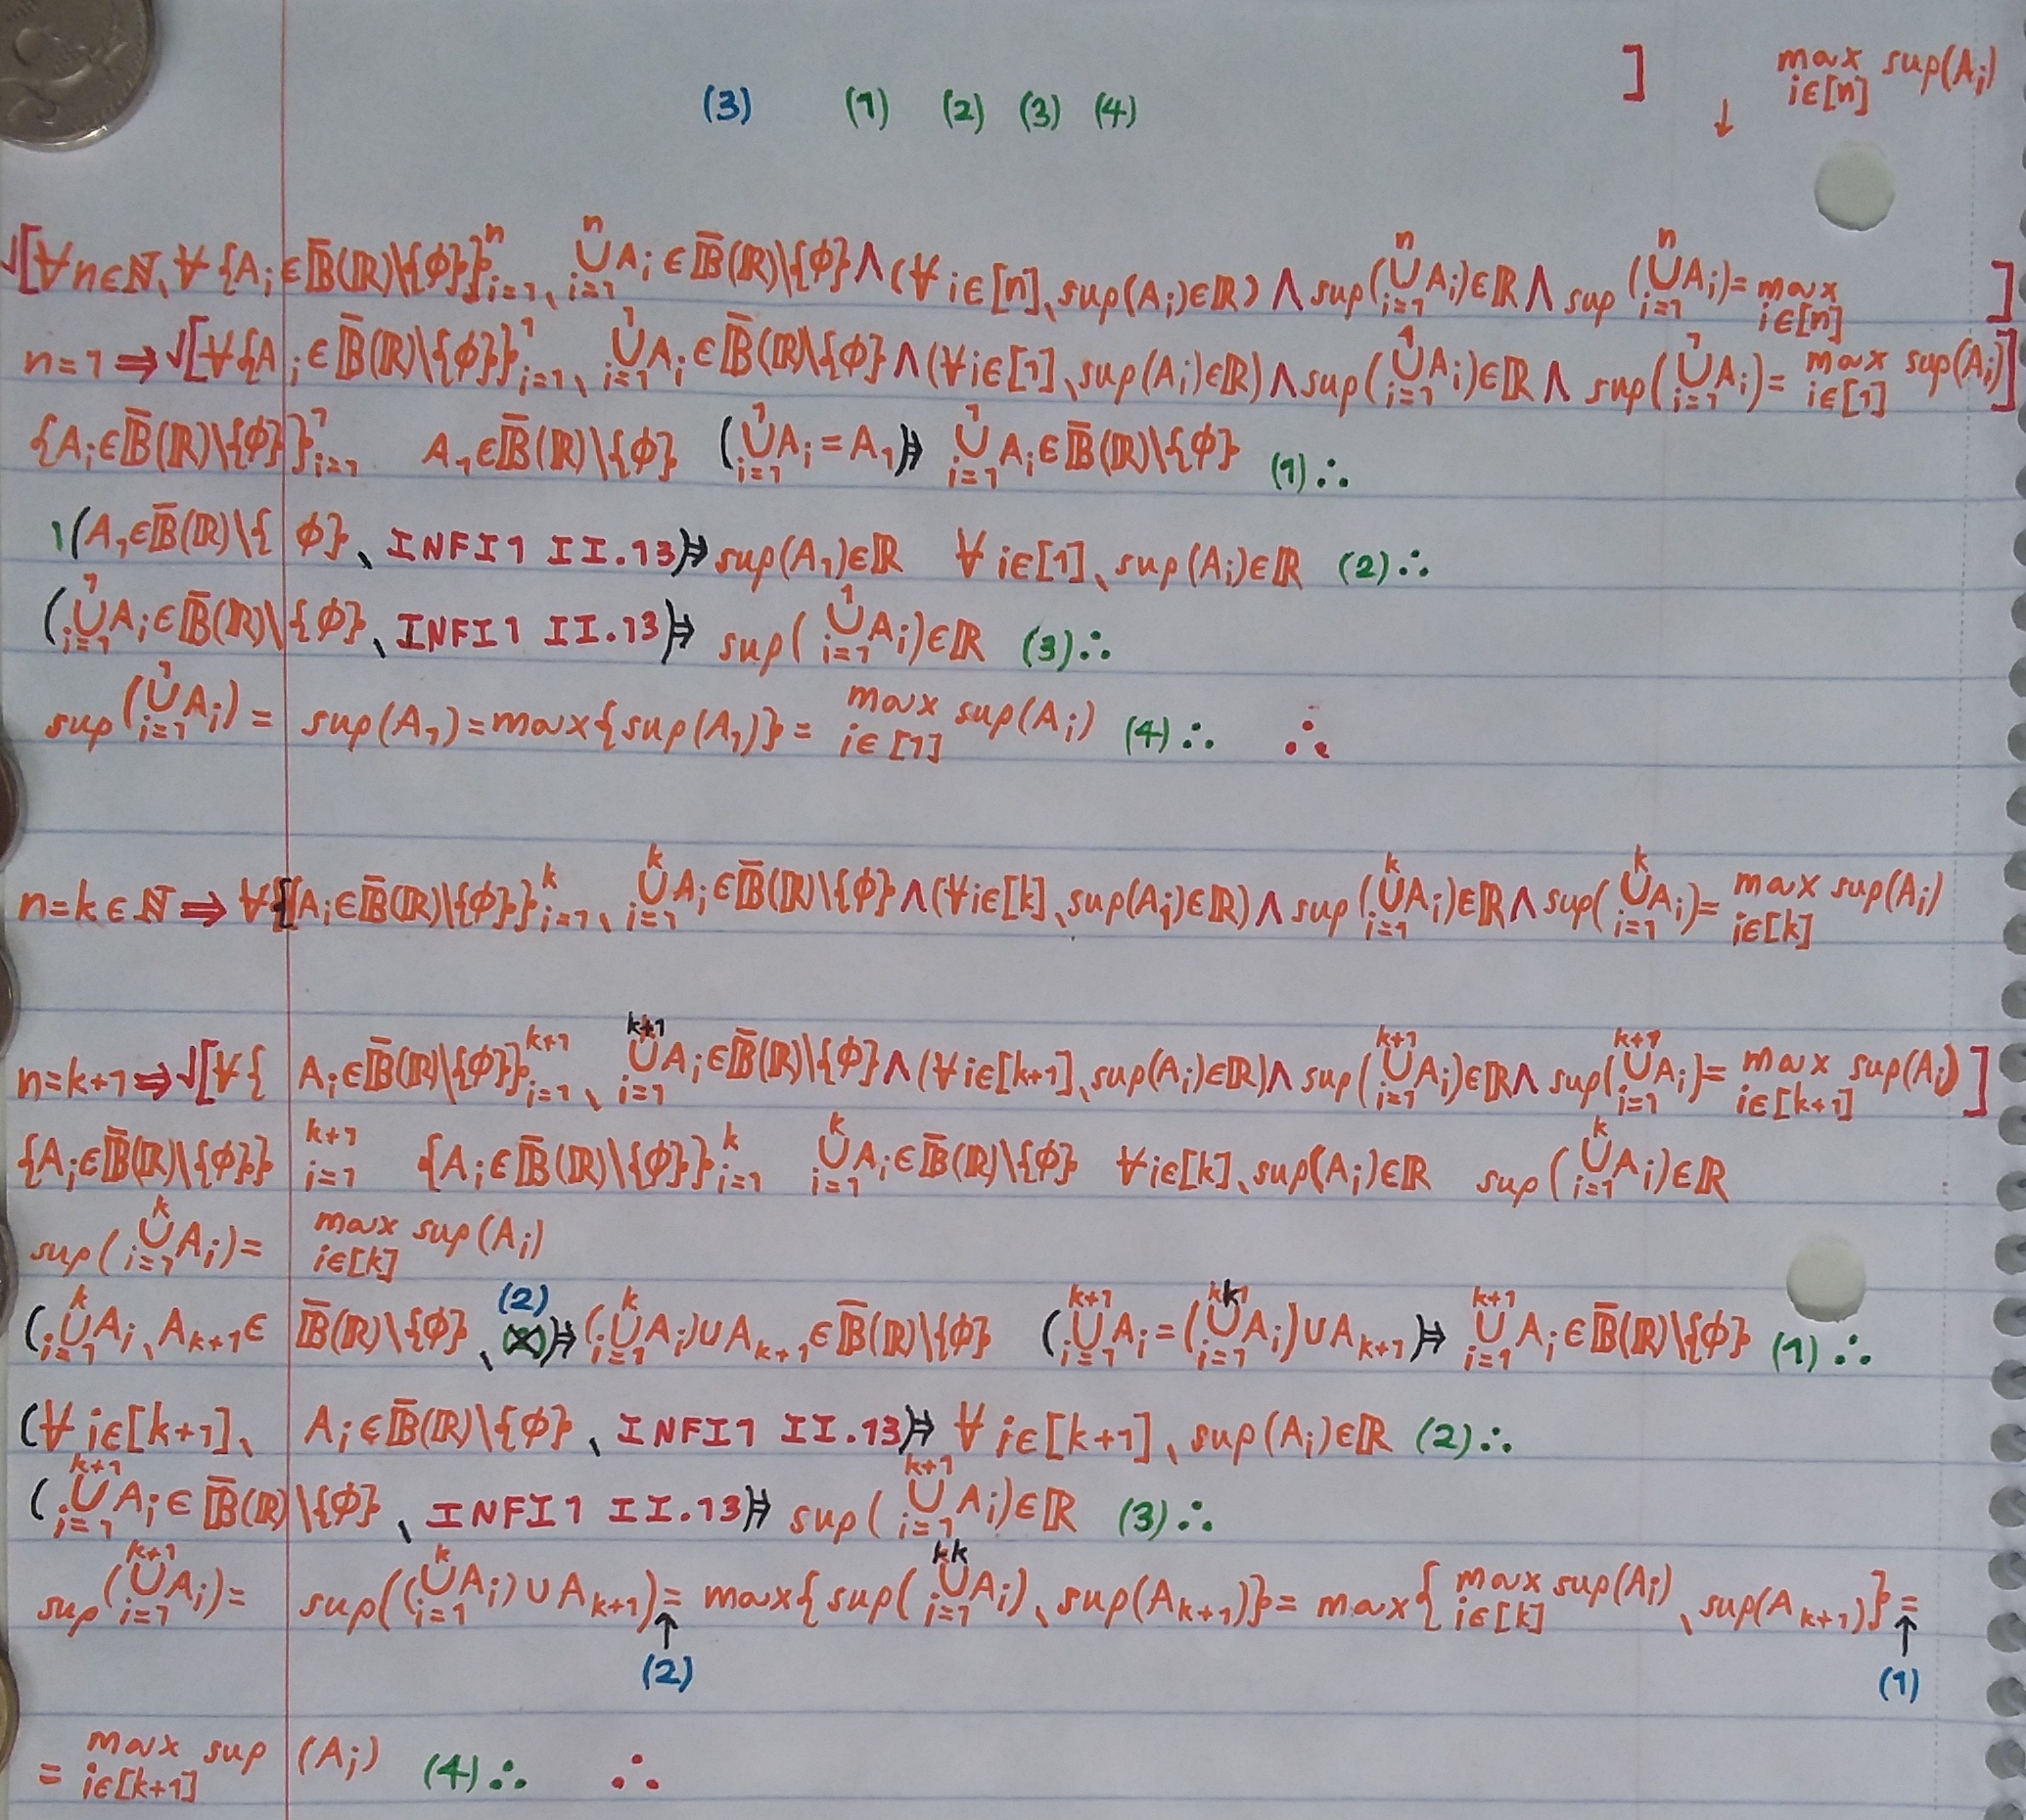 (3) (1) (2) (3) (4) ] ↓ max i∈[n] sup(Aᵢ)
√[∀n∈ℕ、∀{Aᵢ∈B̄(ℝ)\{ϕ}}ⁿᵢ₌₁、⋃ⁿᵢ₌₁Aᵢ∈B̄(ℝ)\{ϕ}∧(∀i∈[n]、sup(Aᵢ)∈ℝ)∧sup(⋃ⁿᵢ₌₁Aᵢ)∈ℝ∧sup(⋃ⁿᵢ₌₁Aᵢ)=max i∈[n] ]
n=1⇒√[∀{Aᵢ∈B̄(ℝ)\{ϕ}}¹ᵢ₌₁、⋃¹ᵢ₌₁Aᵢ∈B̄(ℝ)\{ϕ}∧(∀i∈[1]、sup(Aᵢ)∈ℝ)∧sup(⋃¹ᵢ₌₁Aᵢ)∈ℝ∧sup(⋃¹ᵢ₌₁Aᵢ)=max i∈[1] sup(Aᵢ)]
{Aᵢ∈B̄(ℝ)\{ϕ}}¹ᵢ₌₁ A₁∈B̄(ℝ)\{ϕ} (⋃¹ᵢ₌₁Aᵢ=A₁)⇒ ⋃¹ᵢ₌₁Aᵢ∈B̄(ℝ)\{ϕ} (1)∴
1(A₁∈B̄(ℝ)\{ϕ}、INFI1 II.13)⇒sup(A₁)∈ℝ ∀i∈[1]、sup(Aᵢ)∈ℝ (2)∴
(⋃¹ᵢ₌₁Aᵢ∈B̄(ℝ)\{ϕ}、INFI1 II.13)⇒ sup(⋃¹ᵢ₌₁Aᵢ)∈ℝ (3)∴
sup(⋃¹ᵢ₌₁Aᵢ)=sup(A₁)=max{sup(A₁)}=max i∈[1] sup(Aᵢ) (4)∴ ∴
n=k∈ℕ⇒∀{Aᵢ∈B̄(ℝ)\{ϕ}}ᵏᵢ₌₁、⋃ᵏᵢ₌₁Aᵢ∈B̄(ℝ)\{ϕ}∧(∀i∈[k]、sup(Aᵢ)∈ℝ)∧sup(⋃ᵏᵢ₌₁Aᵢ)∈ℝ∧sup(⋃ᵏᵢ₌₁Aᵢ)=max i∈[k] sup(Aᵢ)
n=k+1⇒√[∀{Aᵢ∈B̄(ℝ)\{ϕ}}ᵏ⁺¹ᵢ₌₁、⋃ᵏ⁺¹ᵢ₌₁Aᵢ∈B̄(ℝ)\{ϕ}∧(∀i∈[k+1]、sup(Aᵢ)∈ℝ)∧sup(⋃ᵏ⁺¹ᵢ₌₁Aᵢ)∈ℝ∧sup(⋃ᵏ⁺¹ᵢ₌₁Aᵢ)=max i∈[k+1] sup(Aᵢ)]
{Aᵢ∈B̄(ℝ)\{ϕ}}ᵏ⁺¹ᵢ₌₁ {Aᵢ∈B̄(ℝ)\{ϕ}}ᵏᵢ₌₁ ⋃ᵏᵢ₌₁Aᵢ∈B̄(ℝ)\{ϕ} ∀i∈[k]、sup(Aᵢ)∈ℝ sup(⋃ᵏᵢ₌₁Aᵢ)∈ℝ
sup(⋃ᵏᵢ₌₁Aᵢ)=max i∈[k] sup(Aᵢ)
(⋃ᵏᵢ₌₁Aᵢ、Aₖ₊₁∈B̄(ℝ)\{ϕ}、(2))⇒(⋃ᵏᵢ₌₁Aᵢ)∪Aₖ₊₁∈B̄(ℝ)\{ϕ} (⋃ᵏ⁺¹ᵢ₌₁Aᵢ=(⋃ᵏᵢ₌₁Aᵢ)∪Aₖ₊₁)⇒ ⋃ᵏ⁺¹ᵢ₌₁Aᵢ∈B̄(ℝ)\{ϕ} (1)∴
(∀i∈[k+1]、Aᵢ∈B̄(ℝ)\{ϕ}、INFI1 II.13)⇒∀i∈[k+1]、sup(Aᵢ)∈ℝ (2)∴
(⋃ᵏ⁺¹ᵢ₌₁Aᵢ∈B̄(ℝ)\{ϕ}、INFI1 II.13)⇒ sup(⋃ᵏ⁺¹ᵢ₌₁Aᵢ)∈ℝ (3)∴
sup(⋃ᵏ⁺¹ᵢ₌₁Aᵢ)=sup((⋃ᵏᵢ₌₁Aᵢ)∪Aₖ₊₁)=max{sup(⋃ᵏᵢ₌₁Aᵢ)、sup(Aₖ₊₁)}=max{max i∈[k] sup(Aᵢ)、sup(Aₖ₊₁)}=
↑(2) ↑(1)
=max i∈[k+1] sup(Aᵢ) (4)∴ ∴